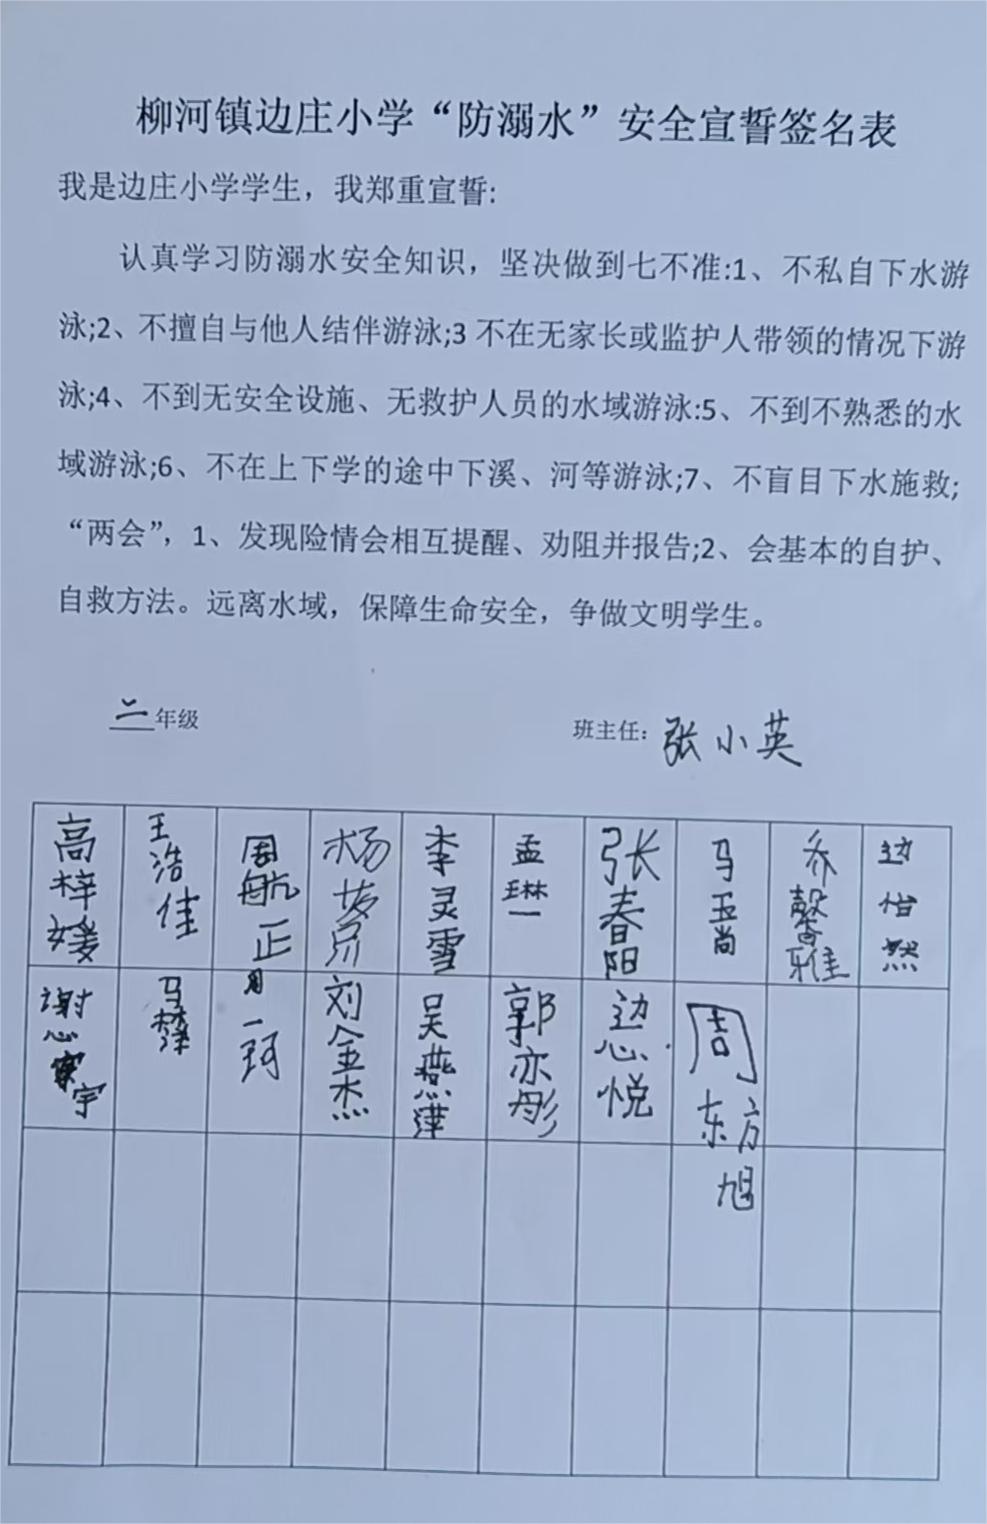 柳河镇边庄小学“防溺水”安全宣誓签名表
我是边庄小学学生，我郑重宣誓:
认真学习防溺水安全知识，坚决做到七不准:1、不私自下水游
泳;2、不擅自与他人结伴游泳;3 不在无家长或监护人带领的情况下游
泳;4、不到无安全设施、无救护人员的水域游泳:5、不到不熟悉的水
域游泳;6、不在上下学的途中下溪、河等游泳;7、不盲目下水施救;
“两会”，1、发现险情会相互提醒、劝阻并报告;2、会基本的自护、
自救方法。远离水域，保障生命安全，争做文明学生。
二年级
班主任：张小英
高梓媛
王浩佳
周航正
杨
李灵雪
孟琳一
张春阳
马玉尚
乔馨雅
边怡然
谢心宇
马
周一珂
刘金杰
吴燕萍
郭亦彤
边心悦
周东方旭